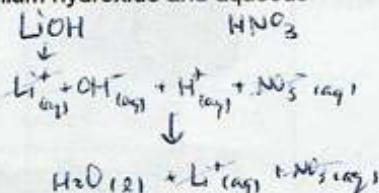 hydroxide and aqueous
LiOH HNO₃
↓
Li⁺(aq) + OH⁻(aq) + H⁺(aq) + NO₃⁻(aq)
↓
H₂O(l) + Li⁺(aq) + NO₃⁻(aq)